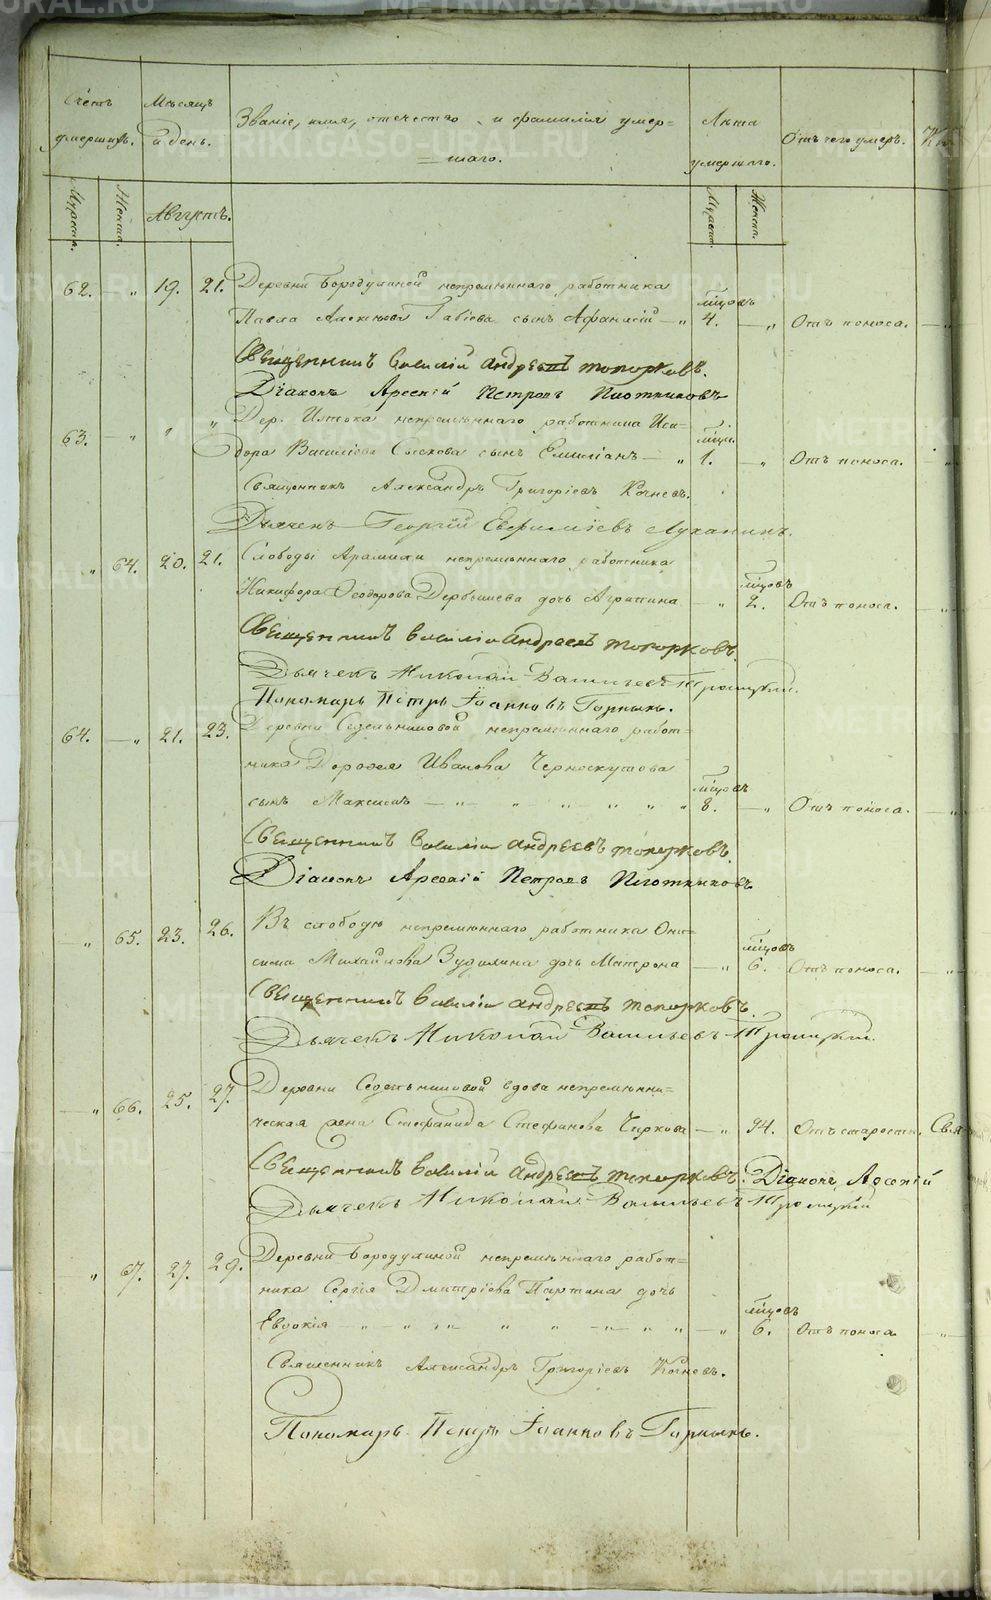 Счетъ умершихъ.
Мѣсяцъ и день.
Званіе, имя, отечество и фамилія умер=
=шаго.
Лѣта умершаго.
Отъ чего умеръ.
Мужеска.
Женска.
Августъ.
Мужеск.
Женск.
62. — „ 19. 21. Деревни Бородулиной непремѣннаго работника
Павла Алексѣева сынъ Афанасій — „ мѣсцовъ 4. — „ Отъ поноса.
Священникъ Василій Андреевъ Топорковъ.
Діаконъ Арсеній Петровъ Плотниковъ
63. — „ „ „ Дер. Истока непремѣннаго работника Иси=
дора Василіева сынъ Емиліанъ — „ мѣсц. 1. — „ Отъ поноса.
Священникъ Александръ Григоріевъ Кочневъ.
Дьячекъ Георгій Евфиміевъ Луканинъ.
„ 64. 20. 21. Слободы Арамили непремѣннаго работника
Никифора Ѳеодорова Дербышева дочь Агрипина — „ мѣсцовъ 2. Отъ поноса.
Священникъ Василій Андреевъ Топорковъ.
Дьячекъ Николай Васильевъ Троицкій.
Пономарь Петръ Іоанновъ Горныхъ.
64. — „ 21. 23. Деревни Седельниковой непремѣннаго работ=
ника Дороѳея Иванова Черноскутова
сынъ Максимъ — „ „ „ „ „ „ мѣсцовъ 8. — „ Отъ поноса.
Священникъ Василій Андреевъ Топорковъ.
Діаконъ Арсеній Петровъ Плотниковъ.
— „ 65. 23. 26. Въ слободѣ непремѣннаго работника Они=
сима Михайлова Зудилина дочь Матрона — „ мѣсцовъ 6. Отъ поноса.
Священникъ Василій Андреевъ Топорковъ.
Дьячекъ Николай Васильевъ Троицкій.
— „ 66. 25. 27. Деревни Седельниковой вдова непремѣнни=
ческая жена Стефанида Стефанова Чиркова — „ 94. Отъ старости. Свя
Священникъ Василій Андреевъ Топорковъ. Діаконъ Арсеній
Дьячекъ Николай Васильевъ Троицкій
„ 67. 27. 29. Деревни Бородулиной непремѣннаго работ=
ника Сергія Дмитріева Партина дочь
Евдокія — „ — „ „ „ „ — „ — „ „ — „ мѣсцовъ 6. Отъ поноса.
Священникъ Александръ Григоріевъ Кочневъ.
Пономарь Петръ Іоанновъ Горныхъ.
METRIKI.GASO-URAL.RU